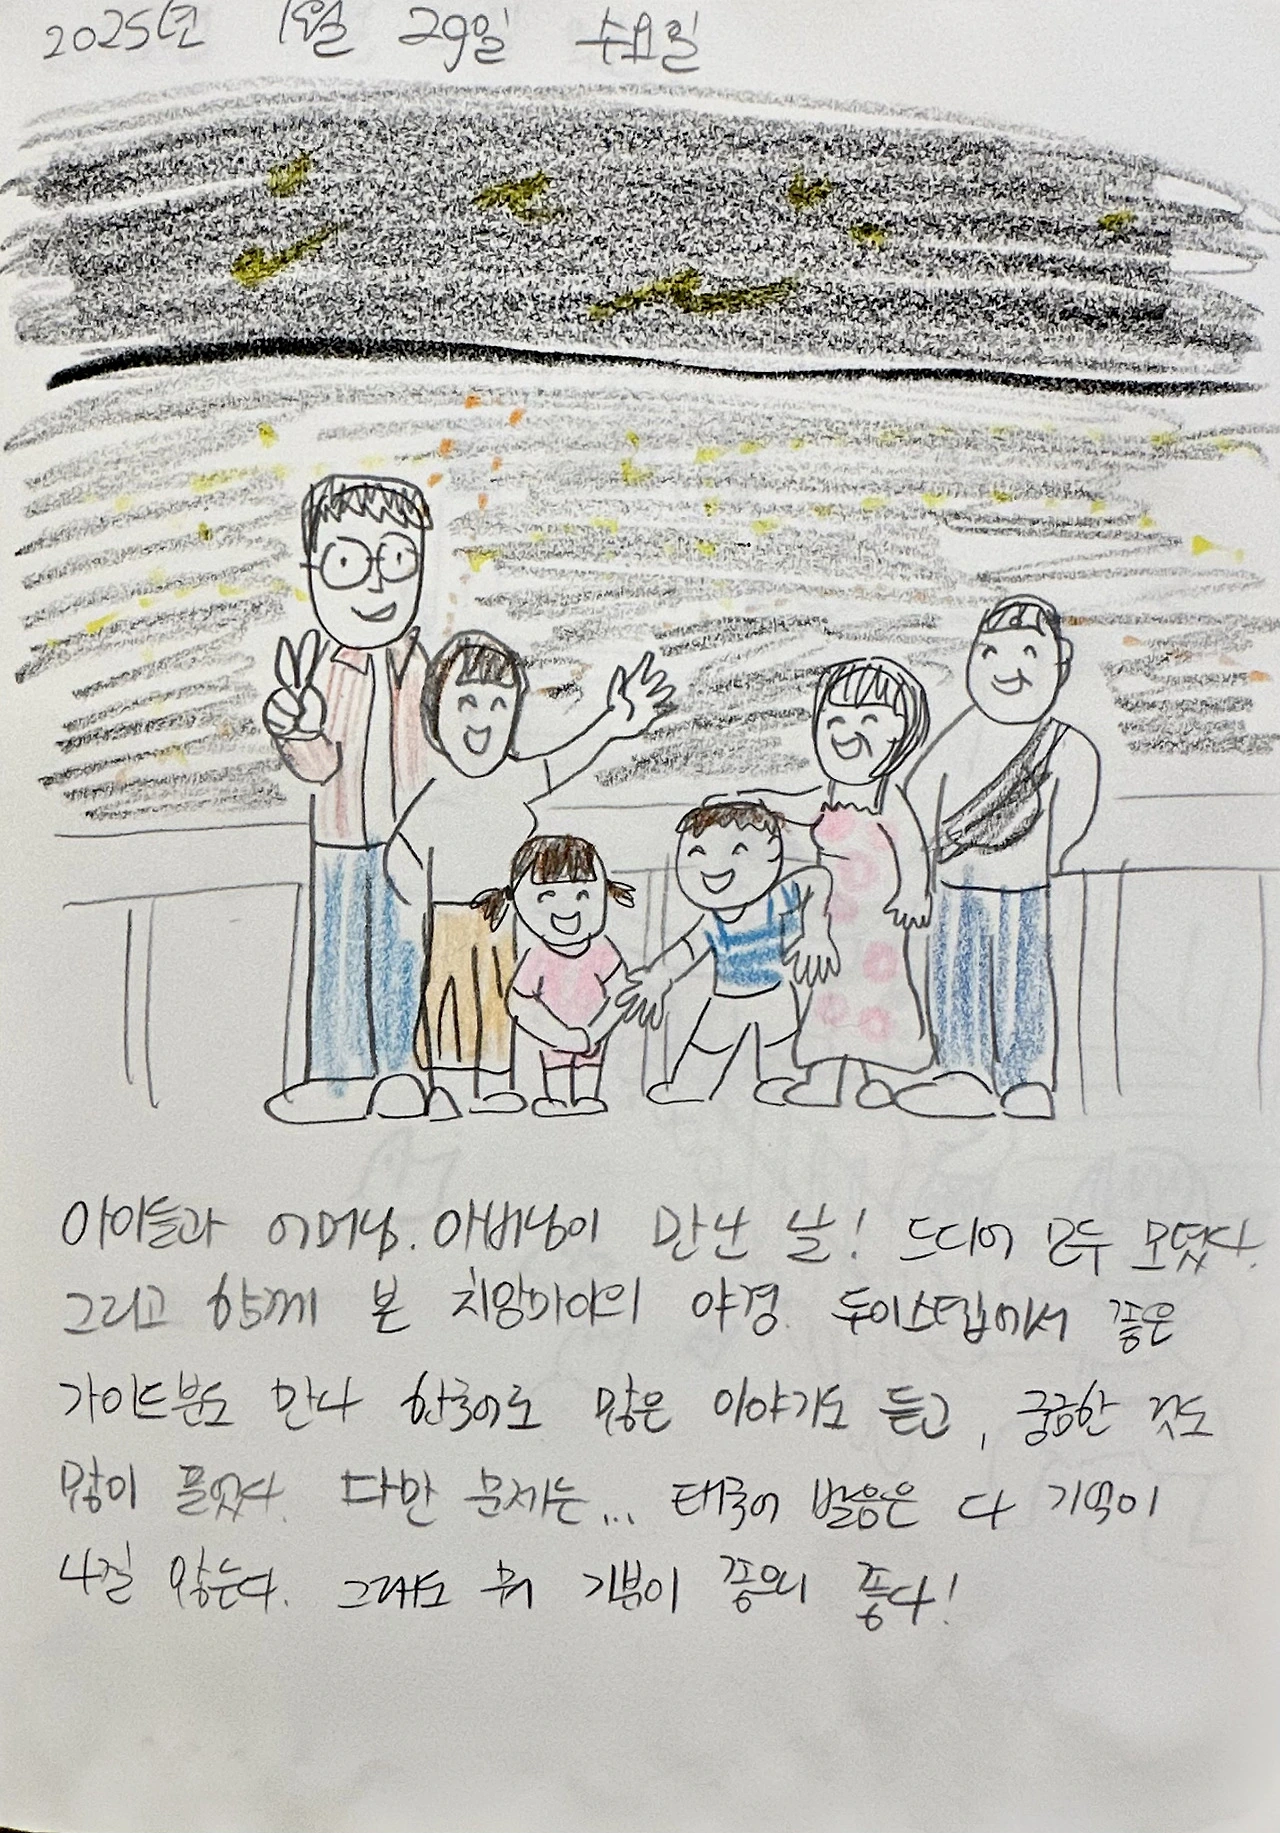 2025년 1월 29일 수요일
아이들과 어머님. 아버님이 만난 날! 드디어 모두 모였다.
그리고 함께 본 치앙마이의 야경. 도이스텝에서 좋은
가이드분도 만나 한국어로 많은 이야기도 듣고, 궁금한 것도
많이 풀었다. 다만 문제는... 태국어 발음은 다 기억이
나질 않는다. 그래도 뭐 기분이 좋으니 좋다!